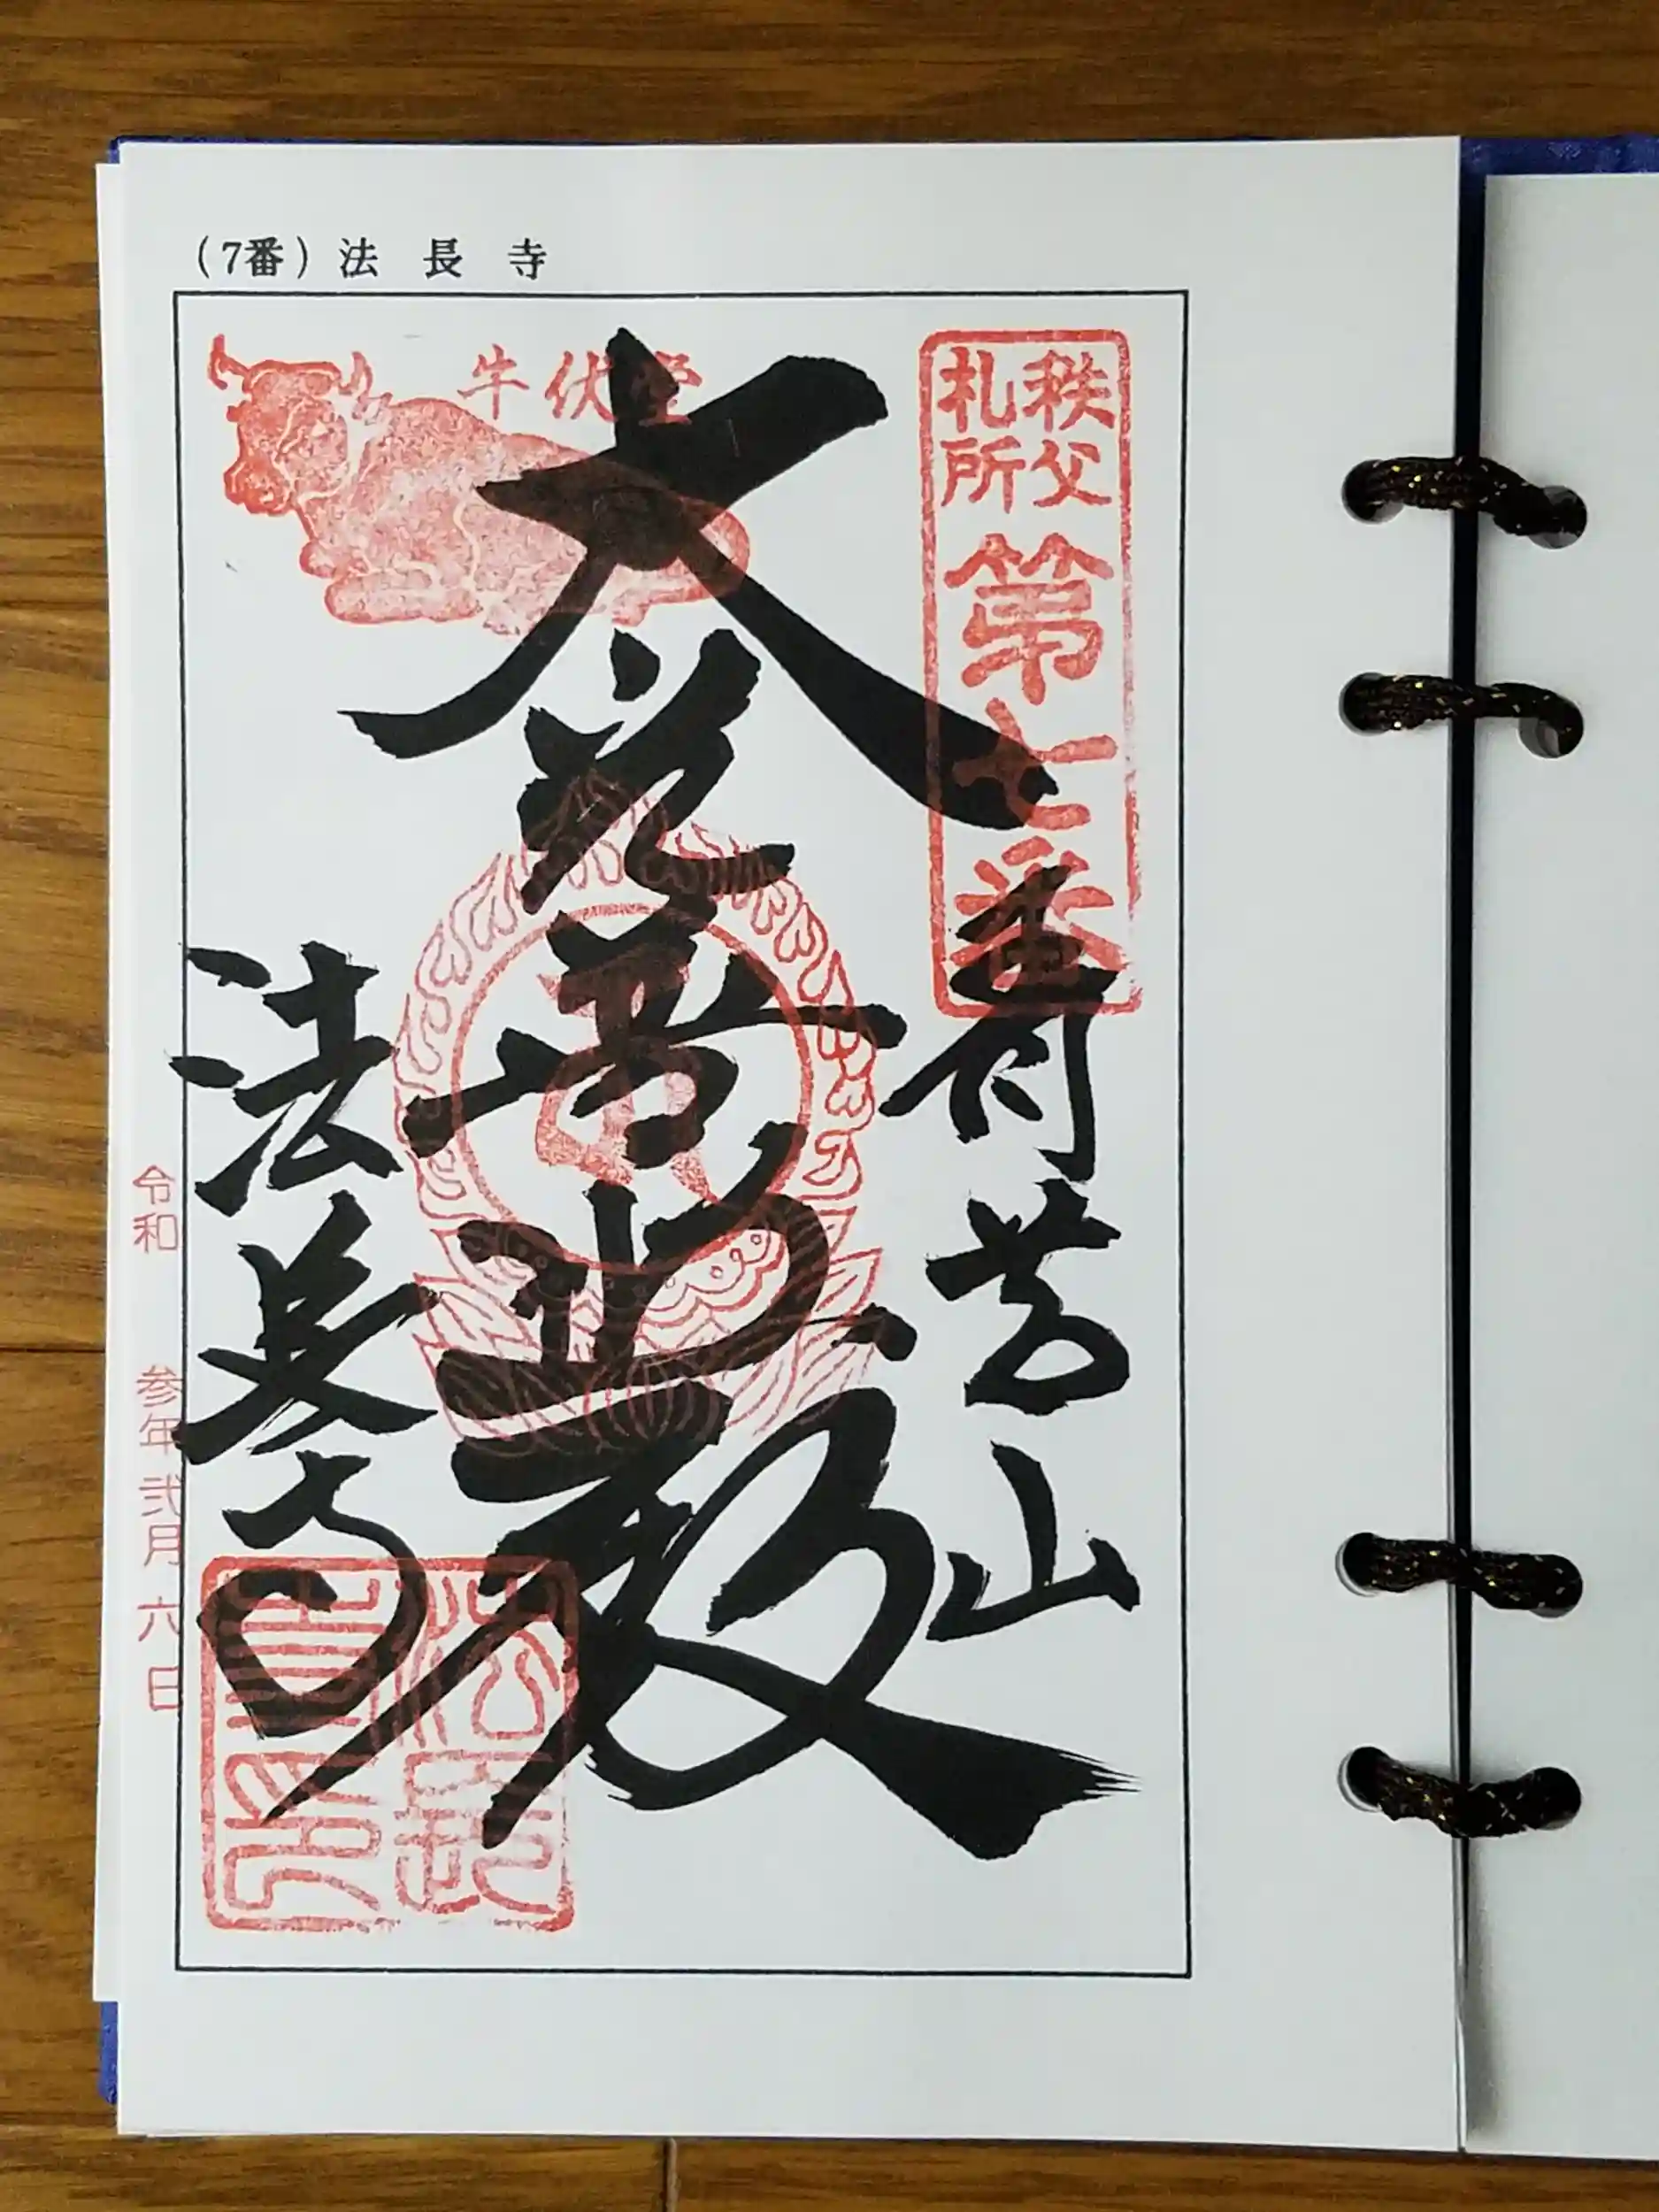 （7番）法長寺
牛伏堂
秩父
札所
第七番
青苔山
大光普照殿
法長寺
令和 参年弐月六日